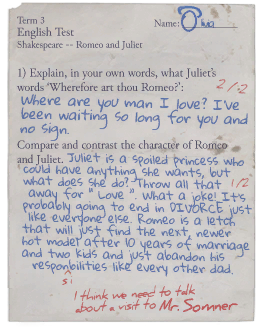 Term 3
Name: Olivia
English Test
Shakespeare -- Romeo and Juliet
1) Explain, in your own words, what Juliet's
words 'Wherefore art thou Romeo?':
2/2
Where are you man I love? I've
been waiting so long for you and
no sign.
Compare and contrast the character of Romeo
and Juliet. Juliet is a spoiled princess who
could have anything she wants, but
what does she do? Throw all that
1/2
away for "Love". What a joke! It's
probably going to end in DIVORCE just
like everyone else. Romeo is a letch
that will just find the next, newer
hot model after 10 years of marriage
and two kids and just abandon his
responbilities like every other dad.
si
I think we need to talk
about a visit to Mr. Somner